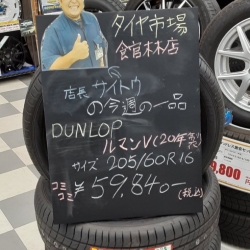 タイヤ市場
食官木林店
店長サイトウ
の今週の一品
DUNLOP
ルマンV(20年製)
サイズ 205/60R16
コミコミ ¥59,840-(税込)
9,800円